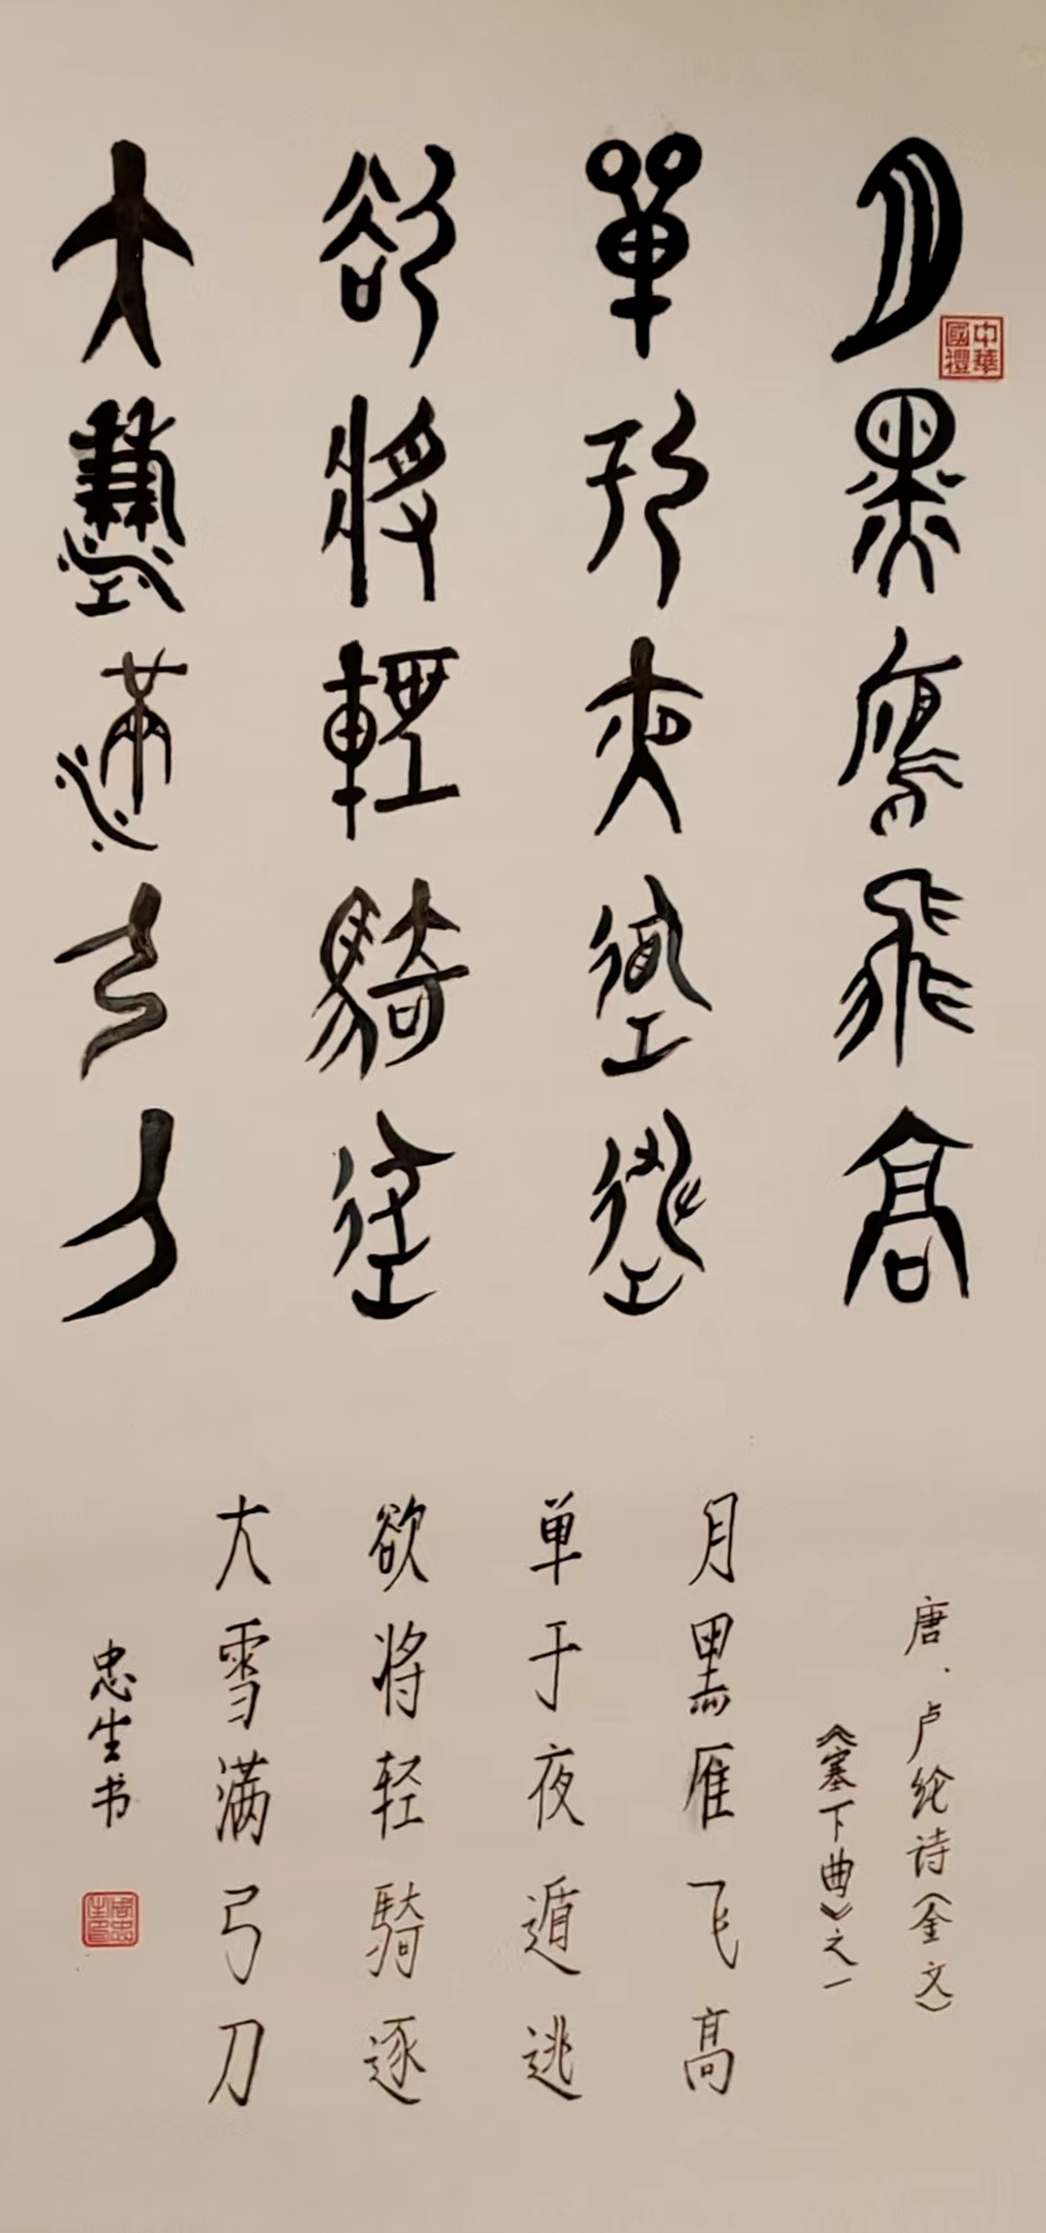 月黑雁飛高
單于夜遁逃
欲將輕騎逐
大雪滿弓刀
中華
國禮
唐、卢纶诗(金文)
《塞下曲》之一
月黑雁飞高
单于夜遁逃
欲将轻骑逐
大雪满弓刀
忠生书